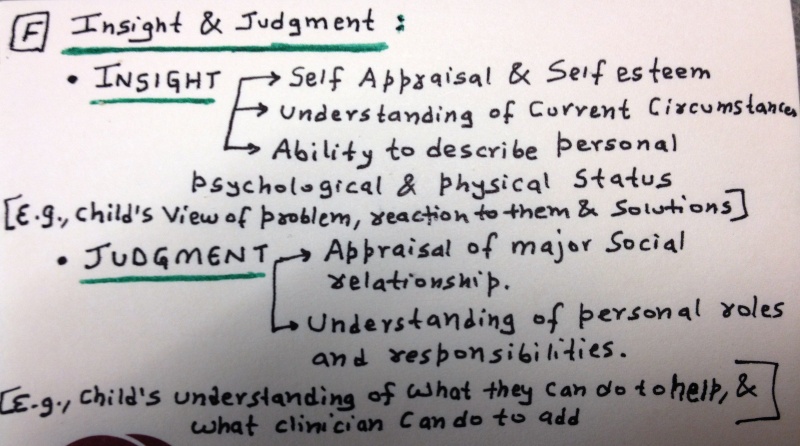 F Insight & Judgment :
• INSIGHT → Self Appraisal & Self esteem
→ Understanding of Current Circumstances
→ Ability to describe personal
psychological & physical Status
[E.g., Child's View of problem, reaction to them & Solutions]
• JUDGMENT → Appraisal of major Social
relationship.
→ Understanding of personal roles
and responsibilities.
[E.g., Child's understanding of what they can do to help, &
what clinician can do to add]